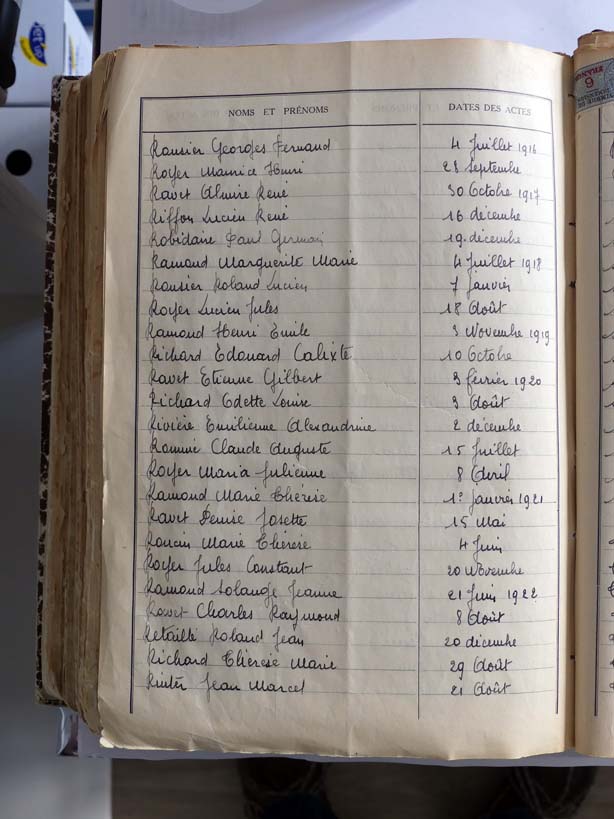 NOMS ET PRÉNOMS DATES DES ACTES
Rousier Georges Fernand 4 Juillet 1916
Royer Maurice Henri 28 Septembre
Ravet Almire René 30 Octobre 1917
Riffon Lucien René 16 décembre
Robidaire Paul Germain 19 décembre
Ramond Marguerite Marie 4 Juillet 1918
Rousier Roland Lucien 7 Janvier
Royer Lucien Jules 18 Août
Ramond Henri Emile 3 Novembre 1919
Richard Edouard Calixte 10 Octobre
Ravet Etienne Gilbert 3 février 1920
Richard Odette Louise 3 Août
Rivière Emilienne Alexandrine 2 décembre
Claude Auguste 15 Juillet
Royer Maria Julienne 8 Avril
Ramond Marie Thérèse 1º Janvier 1921
Ravet Denise Josette 15 Mai
Marie Thérèse 4 Juin
Royer Jules Constant 20 Novembre
Ramond Solange Jeanne 21 Juin 1922
Ravet Charles Raymond 8 Août
Retaillé Roland Jean 20 décembre
Richard Thérèse Marie 29 Août
Jean Marcel 21 Août
6
FRANCS